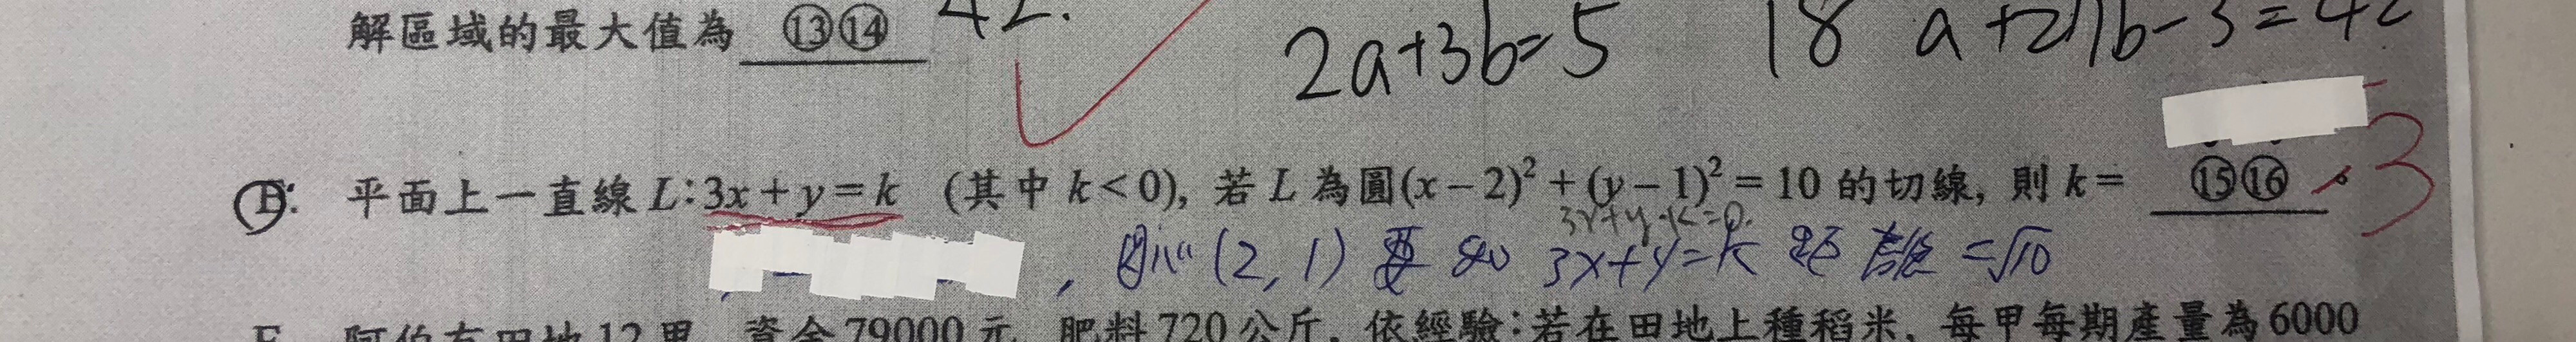 解區域的最大值為 ⑬⑭ 42.
2a+3b=5 18
E. 平面上一直線 L:3x+y=k (其中 k<0), 若 L 為圓(x-2)²+(y-1)²=10 的切線, 則 k= ⑮⑯ . -3
3x+y-k=0.
, 圓心 (2,1) 要 如 3x+y=k 距離 =√10
F. 阿伯有田地 12 甲, 資金 79000 元, 肥料 720 公斤, 依經驗:若在田地上種稻米, 每甲每期產量為 6000